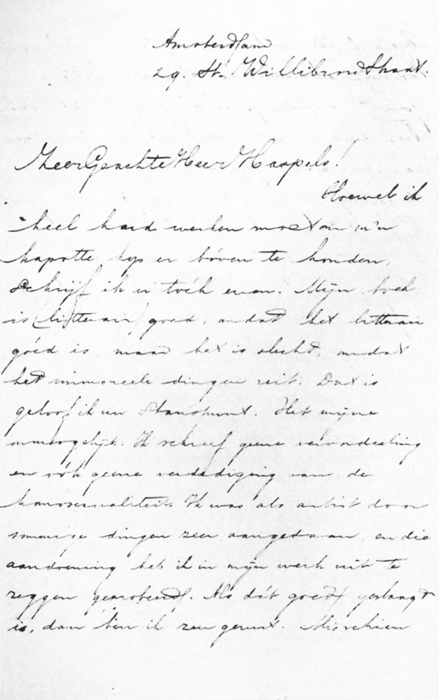 Amsterdam
29. St. Willibrordstraat.
Zeer Geachte Heer Haspels!
Hoewel ik
heel hard werken moet om m'n
kapotte kop er bóven te houden,
schrijf ik u tóch even. Mijn boek
is (litterair) goed, omdat het litterair
góed is, maar het is slecht, omdat
het immoreele dingen zeit. Dat is
geloof ik uw standpunt. Het mijne
onmogelijk. Ik schreef geene veroordeeling
en óók geene verdediging van de
homosexualiteit. Ik was als artist door
sommige dingen zeer aangedaan, en die
aandoening heb ik in mijn werk uit te
zeggen geprobeerd. Als dát goed geslaagd
is, dan ben ik zeer gerust. Misschien